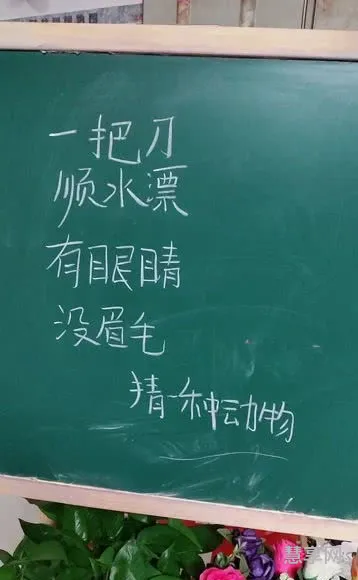 一把刀
顺水漂
有眼睛
没眉毛
猜一种动物
慧享网